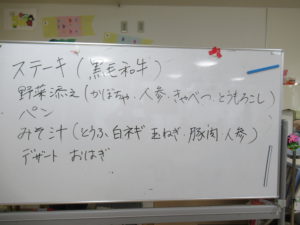 ステーキ(黒毛和牛)
野菜添え(かぼちゃ、人参、きゃべつ、とうもろこし)
パン
みそ汁(とうふ、白ネギ 玉ねぎ、豚肉 人参)
デザート おはぎ